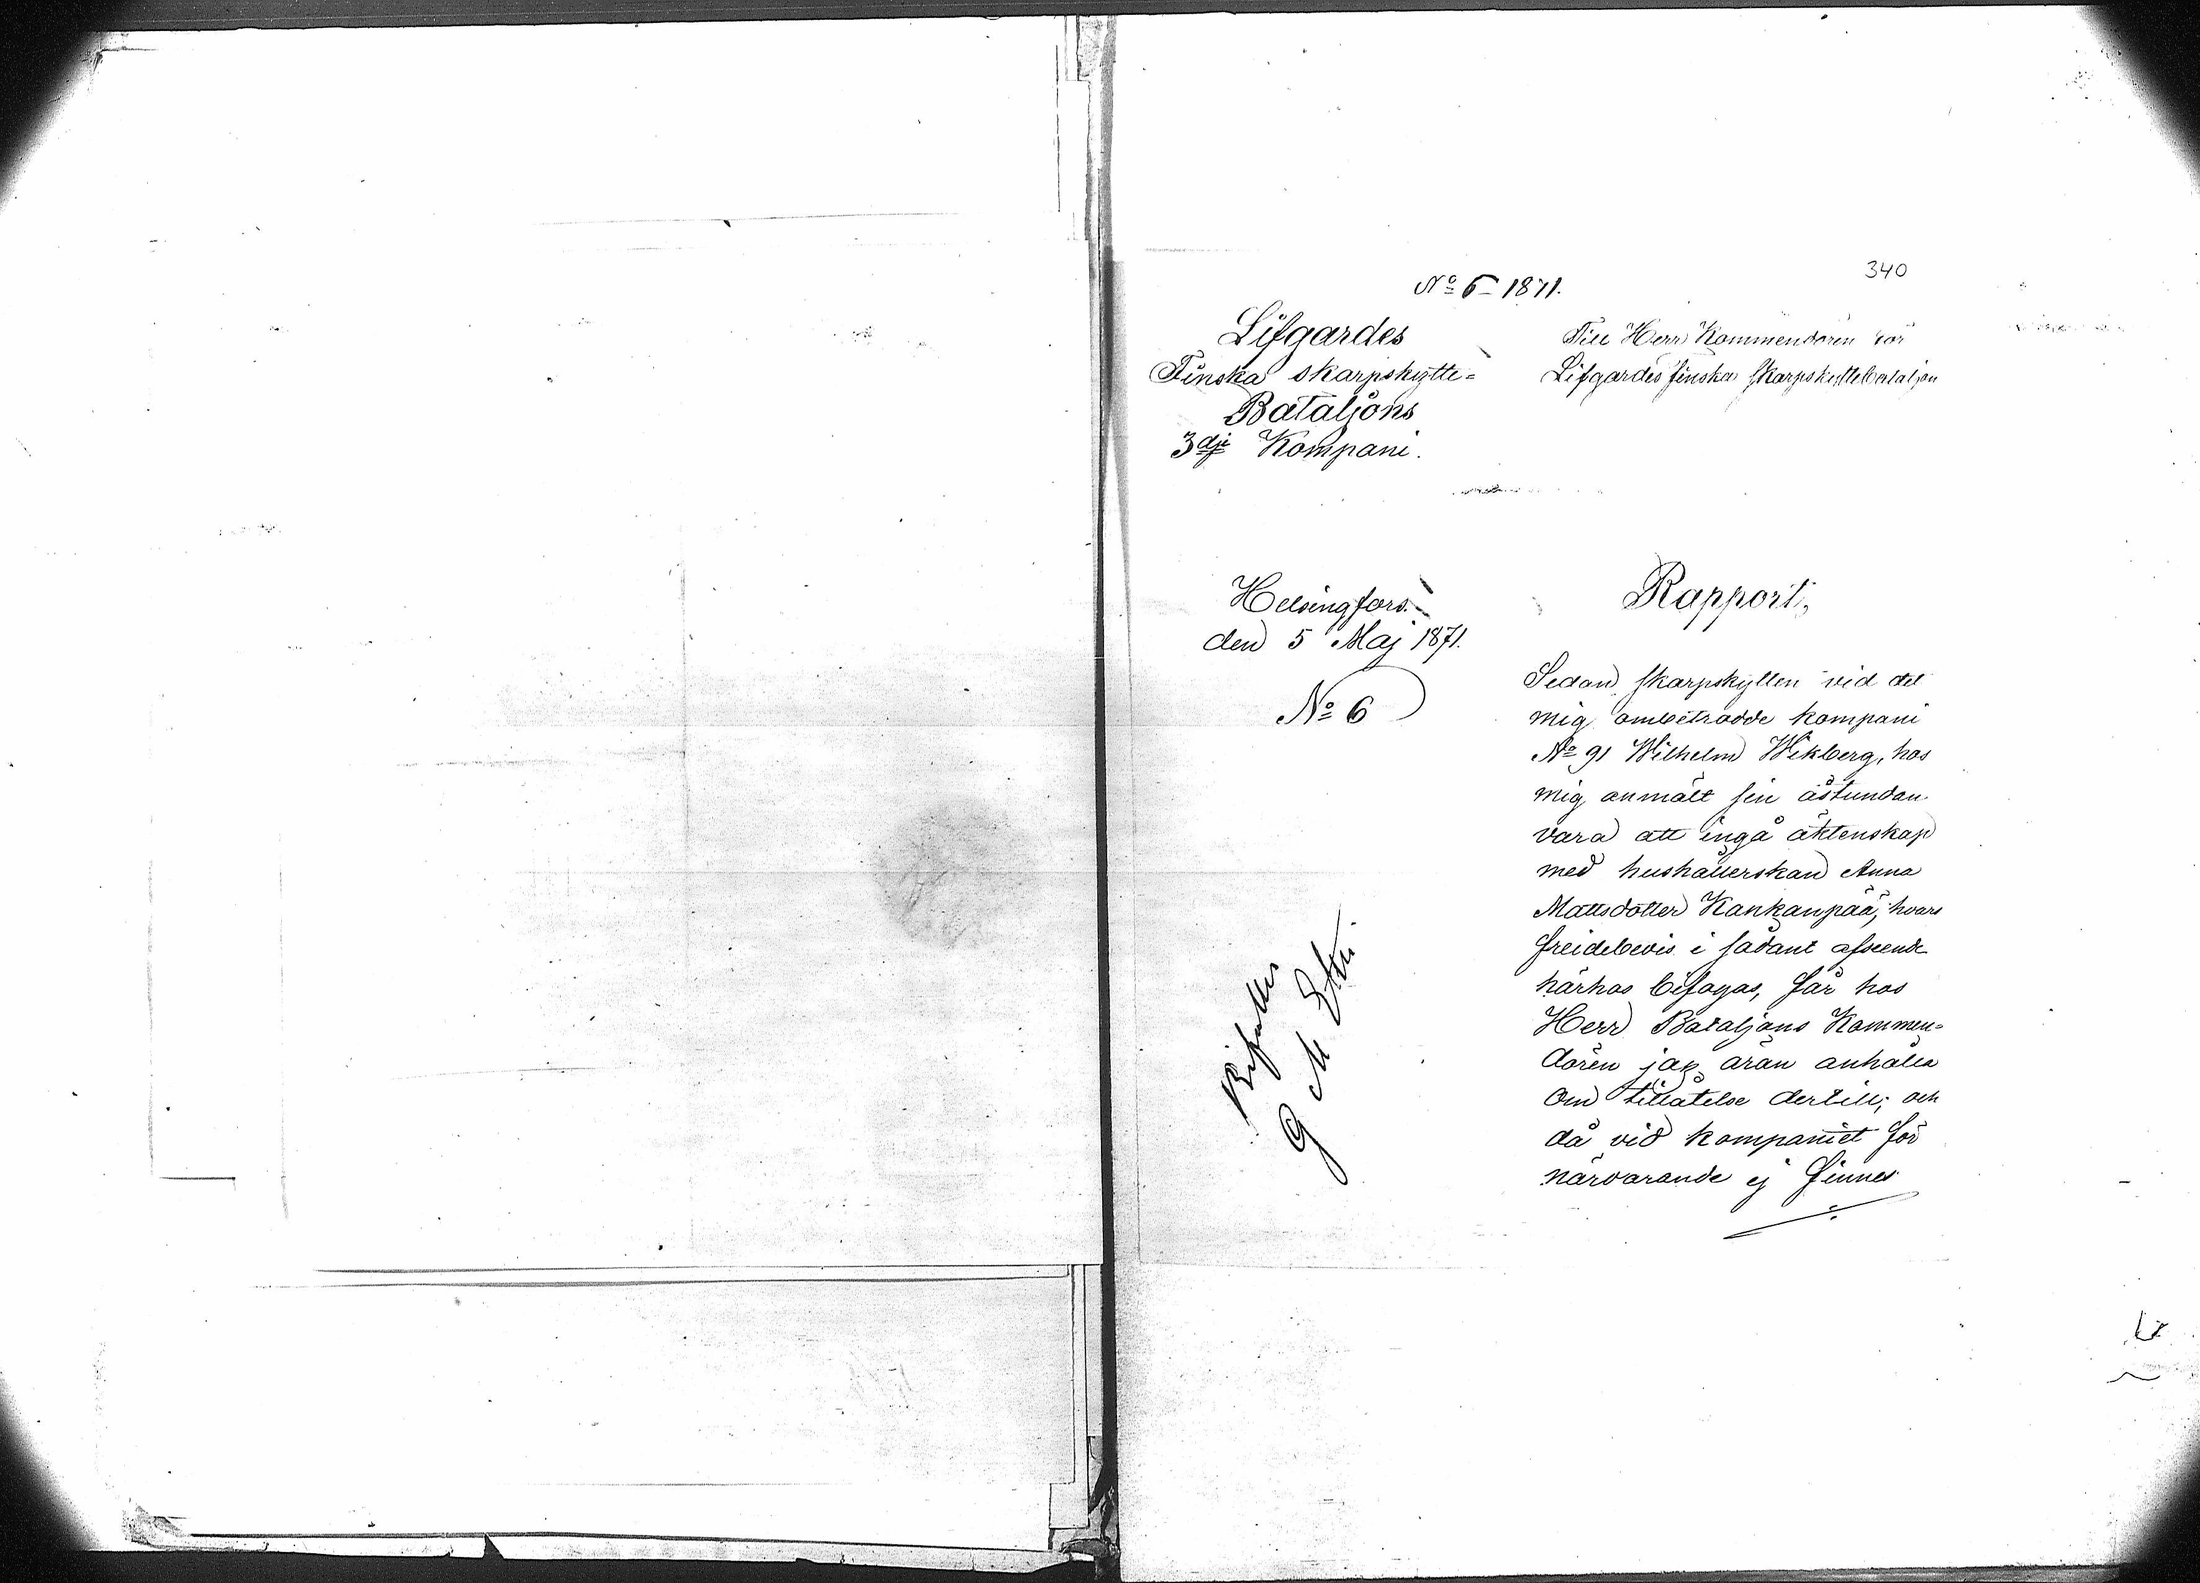 340
Nº 6 – 1871.
Lifgardes
Finska skarpskytte=
Bataljons
3dje Kompani.
Till Herr Kommendören för
Lifgardes finska skarpskyttebataljon
Helsingfors.
den 5 Maj 1871.
Nº 6
Rapport,
Sedan skarpskytten vid det
mig ombetrodde kompani
Nº 91 Wilhelm Wikberg, hos
mig anmält sin åstundan
vara att ingå äktenskap
med hushållerskan Anna
Mattsdotter Kankanpää, hvars
frejdebevis i sådant afseende
härhos bifogas, får hos
Herr Bataljons Kommen=
dören jag äran anhålla
om tillåtelse dertill; och
då vid kompaniet för
närvarande ej finnes
Bifalles
G M